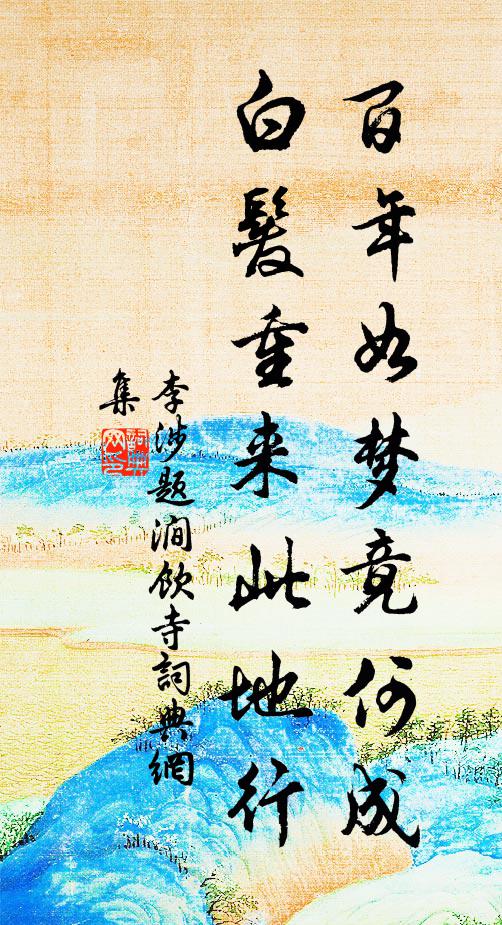 百年如梦竟何成
白髮重来此地行
李涉题涧飲寺詞典網
集